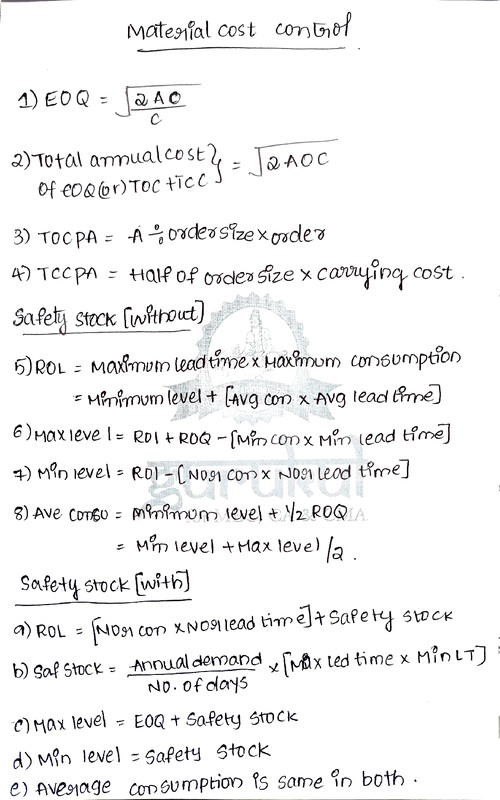 Material cost control
1) EOQ = √2AO/C
2) Total annual cost } = √2AOC
Of EOQ (or) TOC + TCC }
3) TOCPA = A ÷ order size × order
4) TCCPA = Half of order size × carrying cost.
Safety stock [without]
5) ROL = Maximum lead time × Maximum consumption
= Minimum level + [Avg con × Avg lead time]
6) Max level = ROl + ROQ - [Min con × Min lead time]
7) Min level = ROl - [Nor con × Nor lead time]
gurukul
8) Ave consu = minimum level + 1/2 ROQ
CMA
= Min level + Max level / 2.
Safety stock [with]
a) ROL = [Nor con × Nor lead time] + Safety stock
b) Saf Stock = Annual demand / No. of days × [Max led time × Min LT]
c) Max level = EOQ + Safety stock
d) Min level = Safety stock
e) Average consumption is same in both.